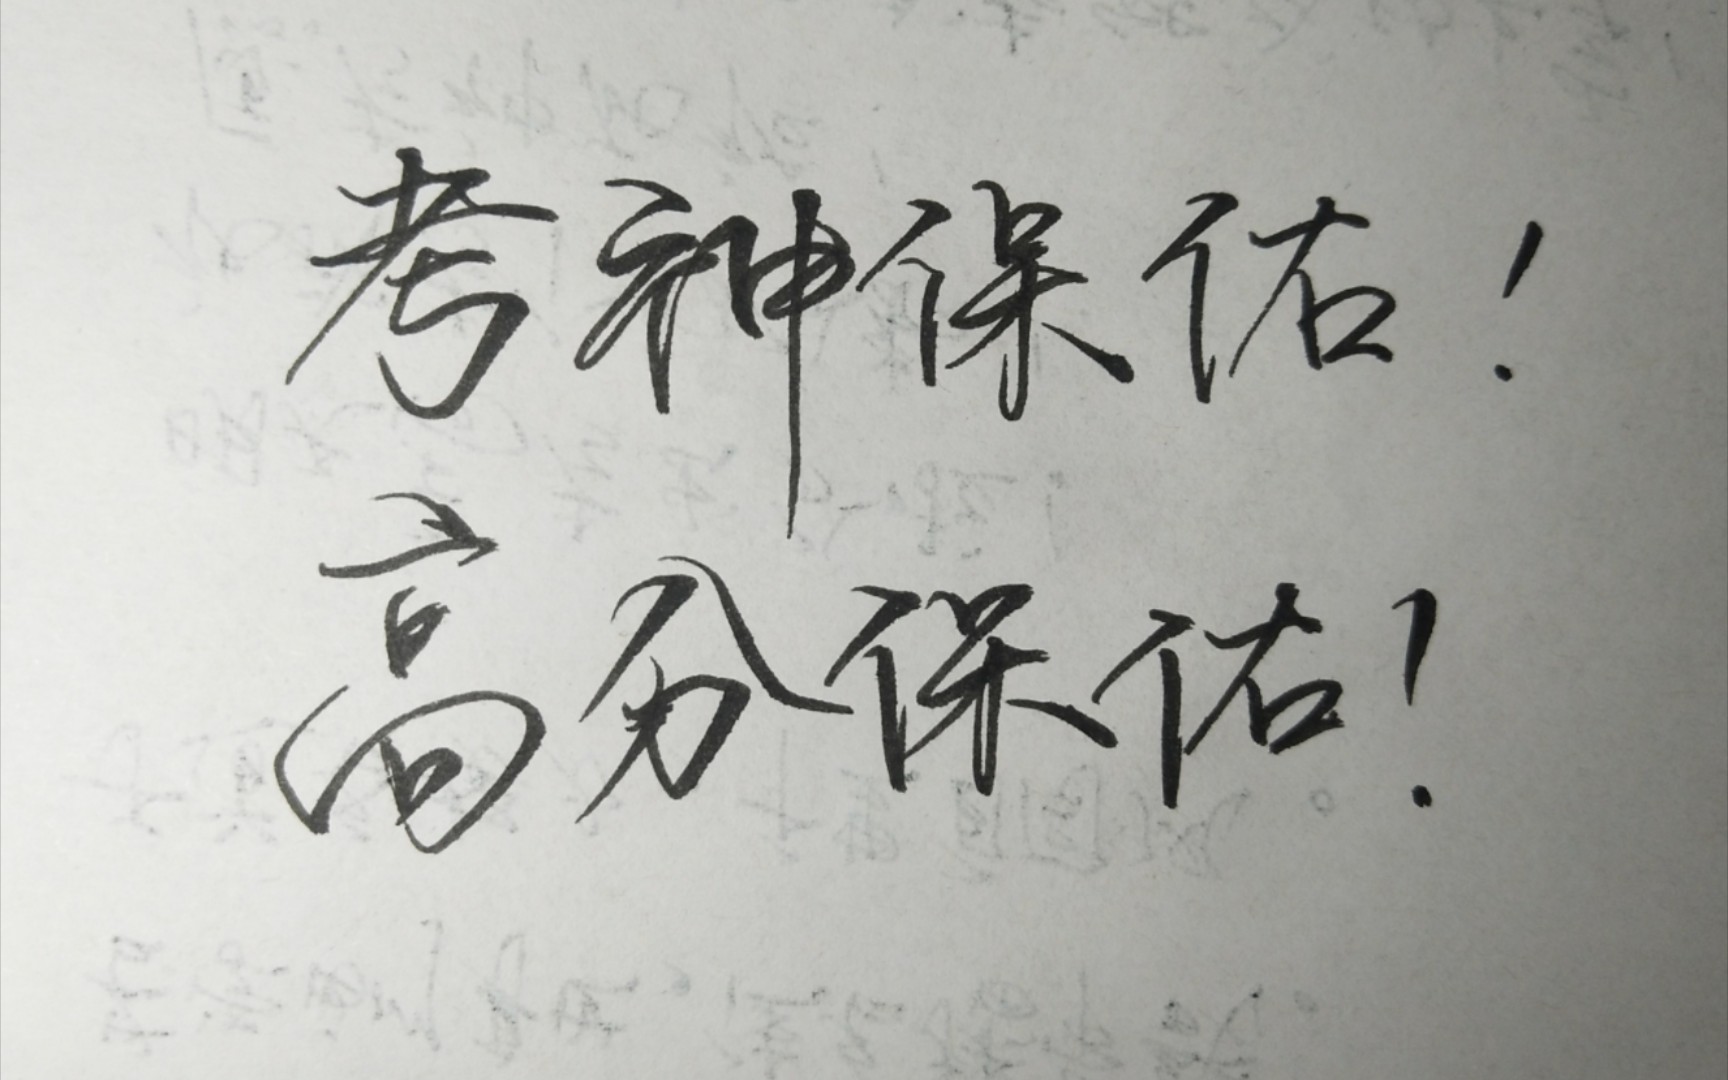 考神保佑!
高分保佑!